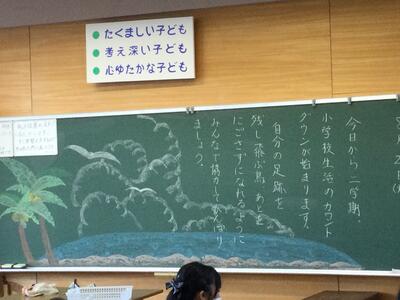 たくましい子ども
考え深い子ども
心ゆたかな子ども
今日から二学期。
小学校生活のカウント
ダウンが始まります。
自分の足跡を
残し「飛ぶ鳥あとを
にごさず」になれるように
みんなで協力してがんばり
ましょう。